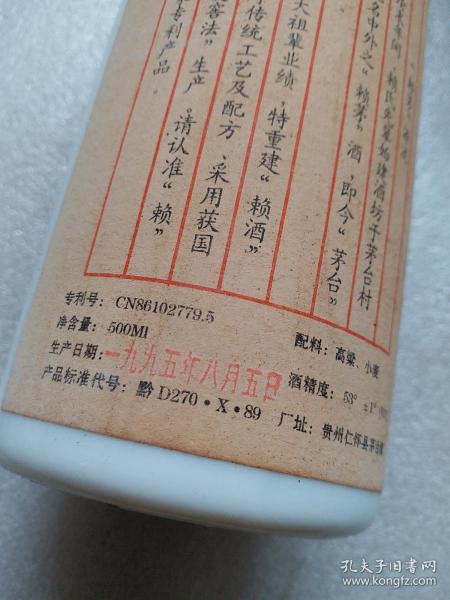 年间，赖氏先辈始建酒坊于茅台村
名中外之“赖茅”酒，即今“茅台”
大祖辈业绩，特重建“赖酒”
传统工艺及配方，采用获国
窖法”生产。请认准“赖”
专利产品。
专利号：CN86102779.5
净含量：500Ml
配料：高粱、小麦
生产日期：一九九五年八月五日
酒精度：53°±1°
产品标准代号：黔D270·X·89
厂址：贵州仁怀县茅台镇
孔夫子旧书网
www.kongfz.com